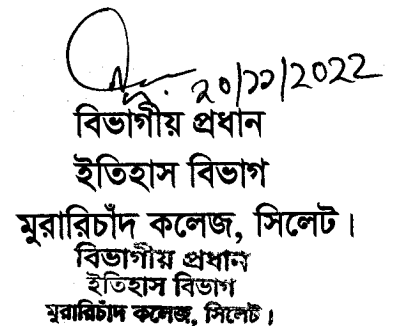 ২০/১১/২০২২
বিভাগীয় প্রধান
ইতিহাস বিভাগ
মুরারিচাঁদ কলেজ, সিলেট।
বিভাগীয় প্রধান
ইতিহাস বিভাগ
মুরারিচাঁদ কলেজ, সিলেট।